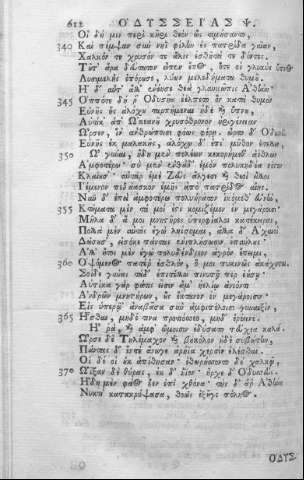 612 ΟΔΥΣΣΕΙΑΣ Ψ.
Οἱ δή μιν περὶ κῆρι θεὸν ὣς τιμήσαντο,
340 Καὶ πέμψαν σὺν νηῒ φίλην ἐς πατρίδα γαῖαν,
Χαλκόν τε χρυσόν τε ἅλις ἐσθῆτά τε δόντες.
Τοῦτ' ἄρα δεύτατον εἶπεν ἔπος, ὅτε οἱ γλυκὺς ὕπνος
Λυσιμελὴς ἐπόρουσε, λύων μελεδήματα θυμοῦ.
Ἡ δ' αὖτ' ἄλλ' ἐνόησε θεὰ γλαυκῶπις Ἀθήνη·
345 Ὁππότε δή ῥ' Ὀδυσῆα ἐέλπετο ὃν κατὰ θυμὸν
Εὐνῆς ἧς ἀλόχου ταρπήμεναι ἠδὲ καὶ ὕπνου,
Αὐτίκ' ἀπ' Ὠκεανοῦ χρυσόθρονον ἠριγένειαν
Ὦρσεν, ἵν' ἀνθρώποισι φόως φέροι. ὦρτο δ' Ὀδυσσεὺς
Εὐνῆς ἐκ μαλακῆς, ἀλόχῳ δ' ἐπὶ μῦθον ἔτελλεν,
350 Ὦ γύναι, ἤδη μὲν πολέων κεκορήμεθ' ἀέθλων
Ἀμφοτέρω· σὺ μὲν ἐνθάδ' ἐμὸν πολυκηδέα νόστον
Κλαίουσ'· αὐτὰρ ἐμὲ Ζεὺς ἄλγεσι καὶ θεοὶ ἄλλοι
Ἱέμενον πεδάασκον ἐμῆς ἀπὸ πατρίδος αἴης.
Νῦν δ' ἐπεὶ ἀμφοτέρω πολυήρατον ἱκόμεθ' εὐνὴν,
355 Κτήματα μὲν τά μοί ἐστι κομιζέμεν ἐν μεγάροισι·
Μῆλα δ' ἅ μοι μνηστῆρες ὑπερφίαλοι κατέκειραν,
Πολλὰ μὲν αὐτὸς ἐγὼ ληΐσσομαι, ἄλλα δ' Ἀχαιοὶ
Δώσουσ', εἰσόκε πάντας ἐνιπλήσωσιν ἐπαύλους·
Ἀλλ' ἤτοι μὲν ἐγὼ πολυδένδρεον ἀγρὸν ἔπειμι,
360 Ὀψόμενος πατέρ' ἐσθλὸν, ὅ μοι πυκινῶς ἀκάχηται.
Σοὶ δὲ γύναι τάδ' ἐπιτέλλω πινυτῇ περ ἐούσῃ·
Αὐτίκα γὰρ φάτις εἶσιν ἅμ' ἠελίῳ ἀνιόντι
Ἀνδρῶν μνηστήρων, οὓς ἔκτανον ἐν μεγάροισιν·
Εἰς ὑπερῷ' ἀναβᾶσα σὺν ἀμφιπόλοισι γυναιξὶν,
365 Ἧσθαι, μηδέ τινα προτιόσσεο, μηδ' ἐρέεινε.
Ἦ ῥα, καὶ ἀμφ' ὤμοισιν ἐδύσατο τεύχεα καλά.
Ὦρσε δὲ Τηλέμαχον καὶ βουκόλον ἠδὲ συβώτην,
Πάντας δ' ἔντε' ἄνωγεν ἀρήϊα χερσὶν ἑλέσθαι.
Οἱ δέ οἱ οὐκ ἀπίθησαν· ἐθωρήσσοντο δὲ χαλκῷ,
370 Ὤϊξαν δὲ θύρας, ἐκ δ' ἤϊον· ἦρχε δ' Ὀδυσσεύς.
Ἤδη μὲν φάος ἦεν ἐπὶ χθόνα· τοὺς δ' ἄρ' Ἀθήνη
Νυκτὶ κατακρύψασα, θοῶς ἐξῆγε πόληος.
ΟΔΥΣ-